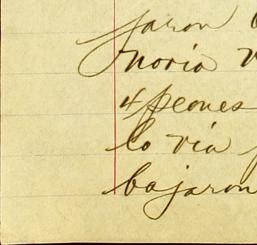 jaron
noria
4 peones
lo via
bajaron